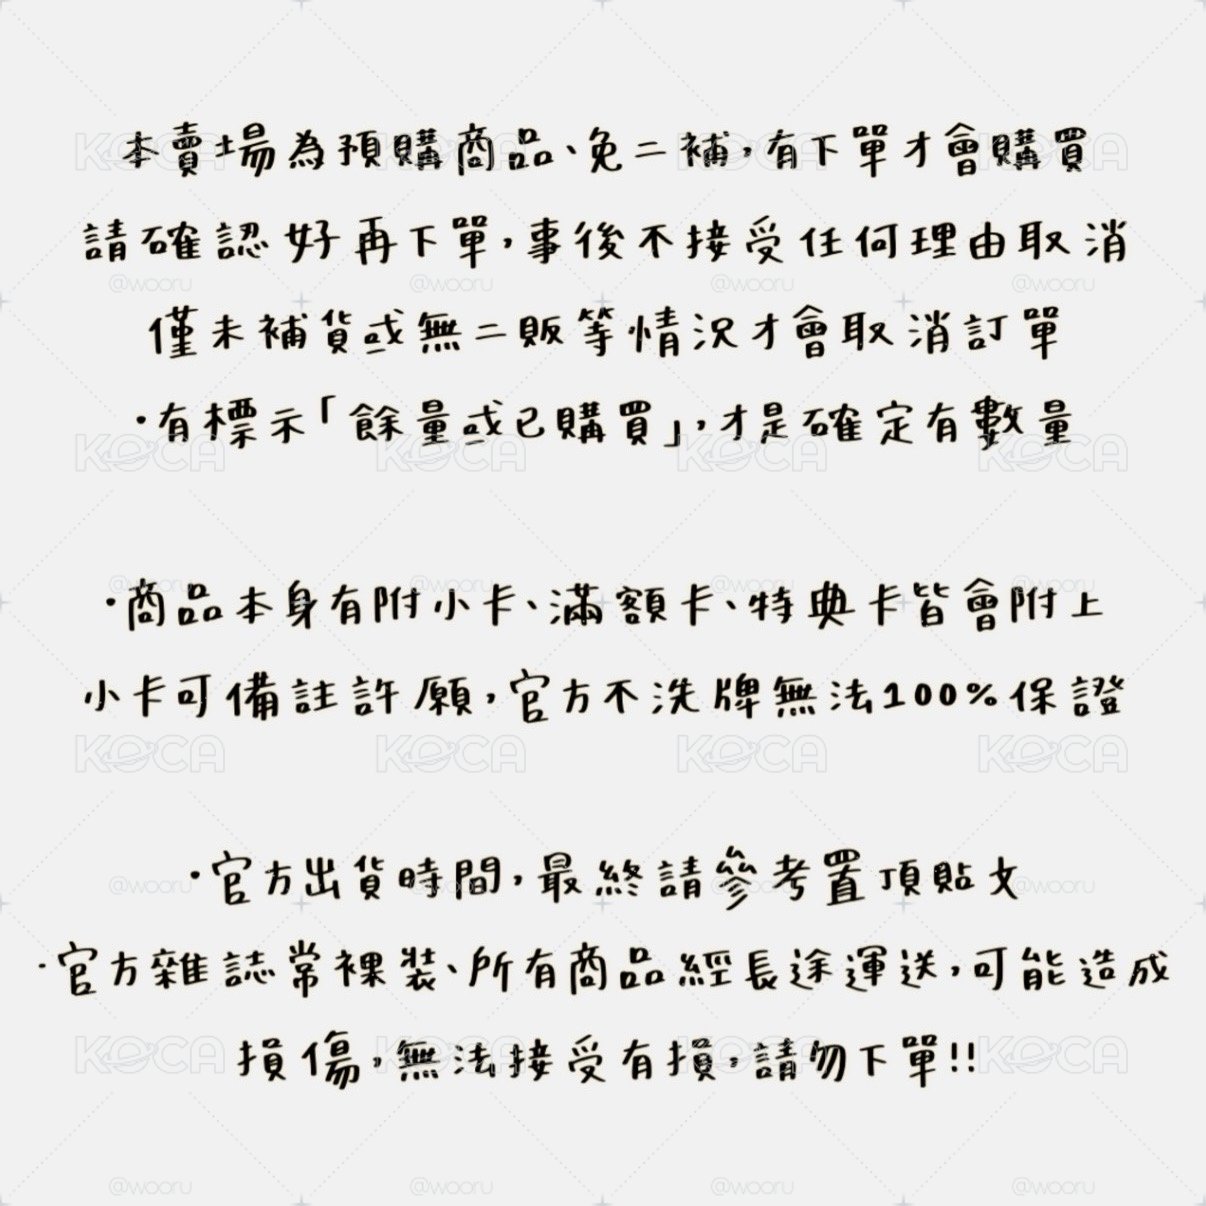 本賣場為預購商品、免二補，有下單才會購買
請確認好再下單，事後不接受任何理由取消
僅未補貨或無二販等情況才會取消訂單
·有標示「餘量或已購買」，才是確定有數量
·商品本身有附小卡、滿額卡、特典卡皆會附上
小卡可備註許願，官方不洗牌無法100%保證
·官方出貨時間，最終請參考置頂貼文
·官方雜誌常裸裝、所有商品經長途運送，可能造成
損傷，無法接受有損，請勿下單!!
KOCA
@wooru